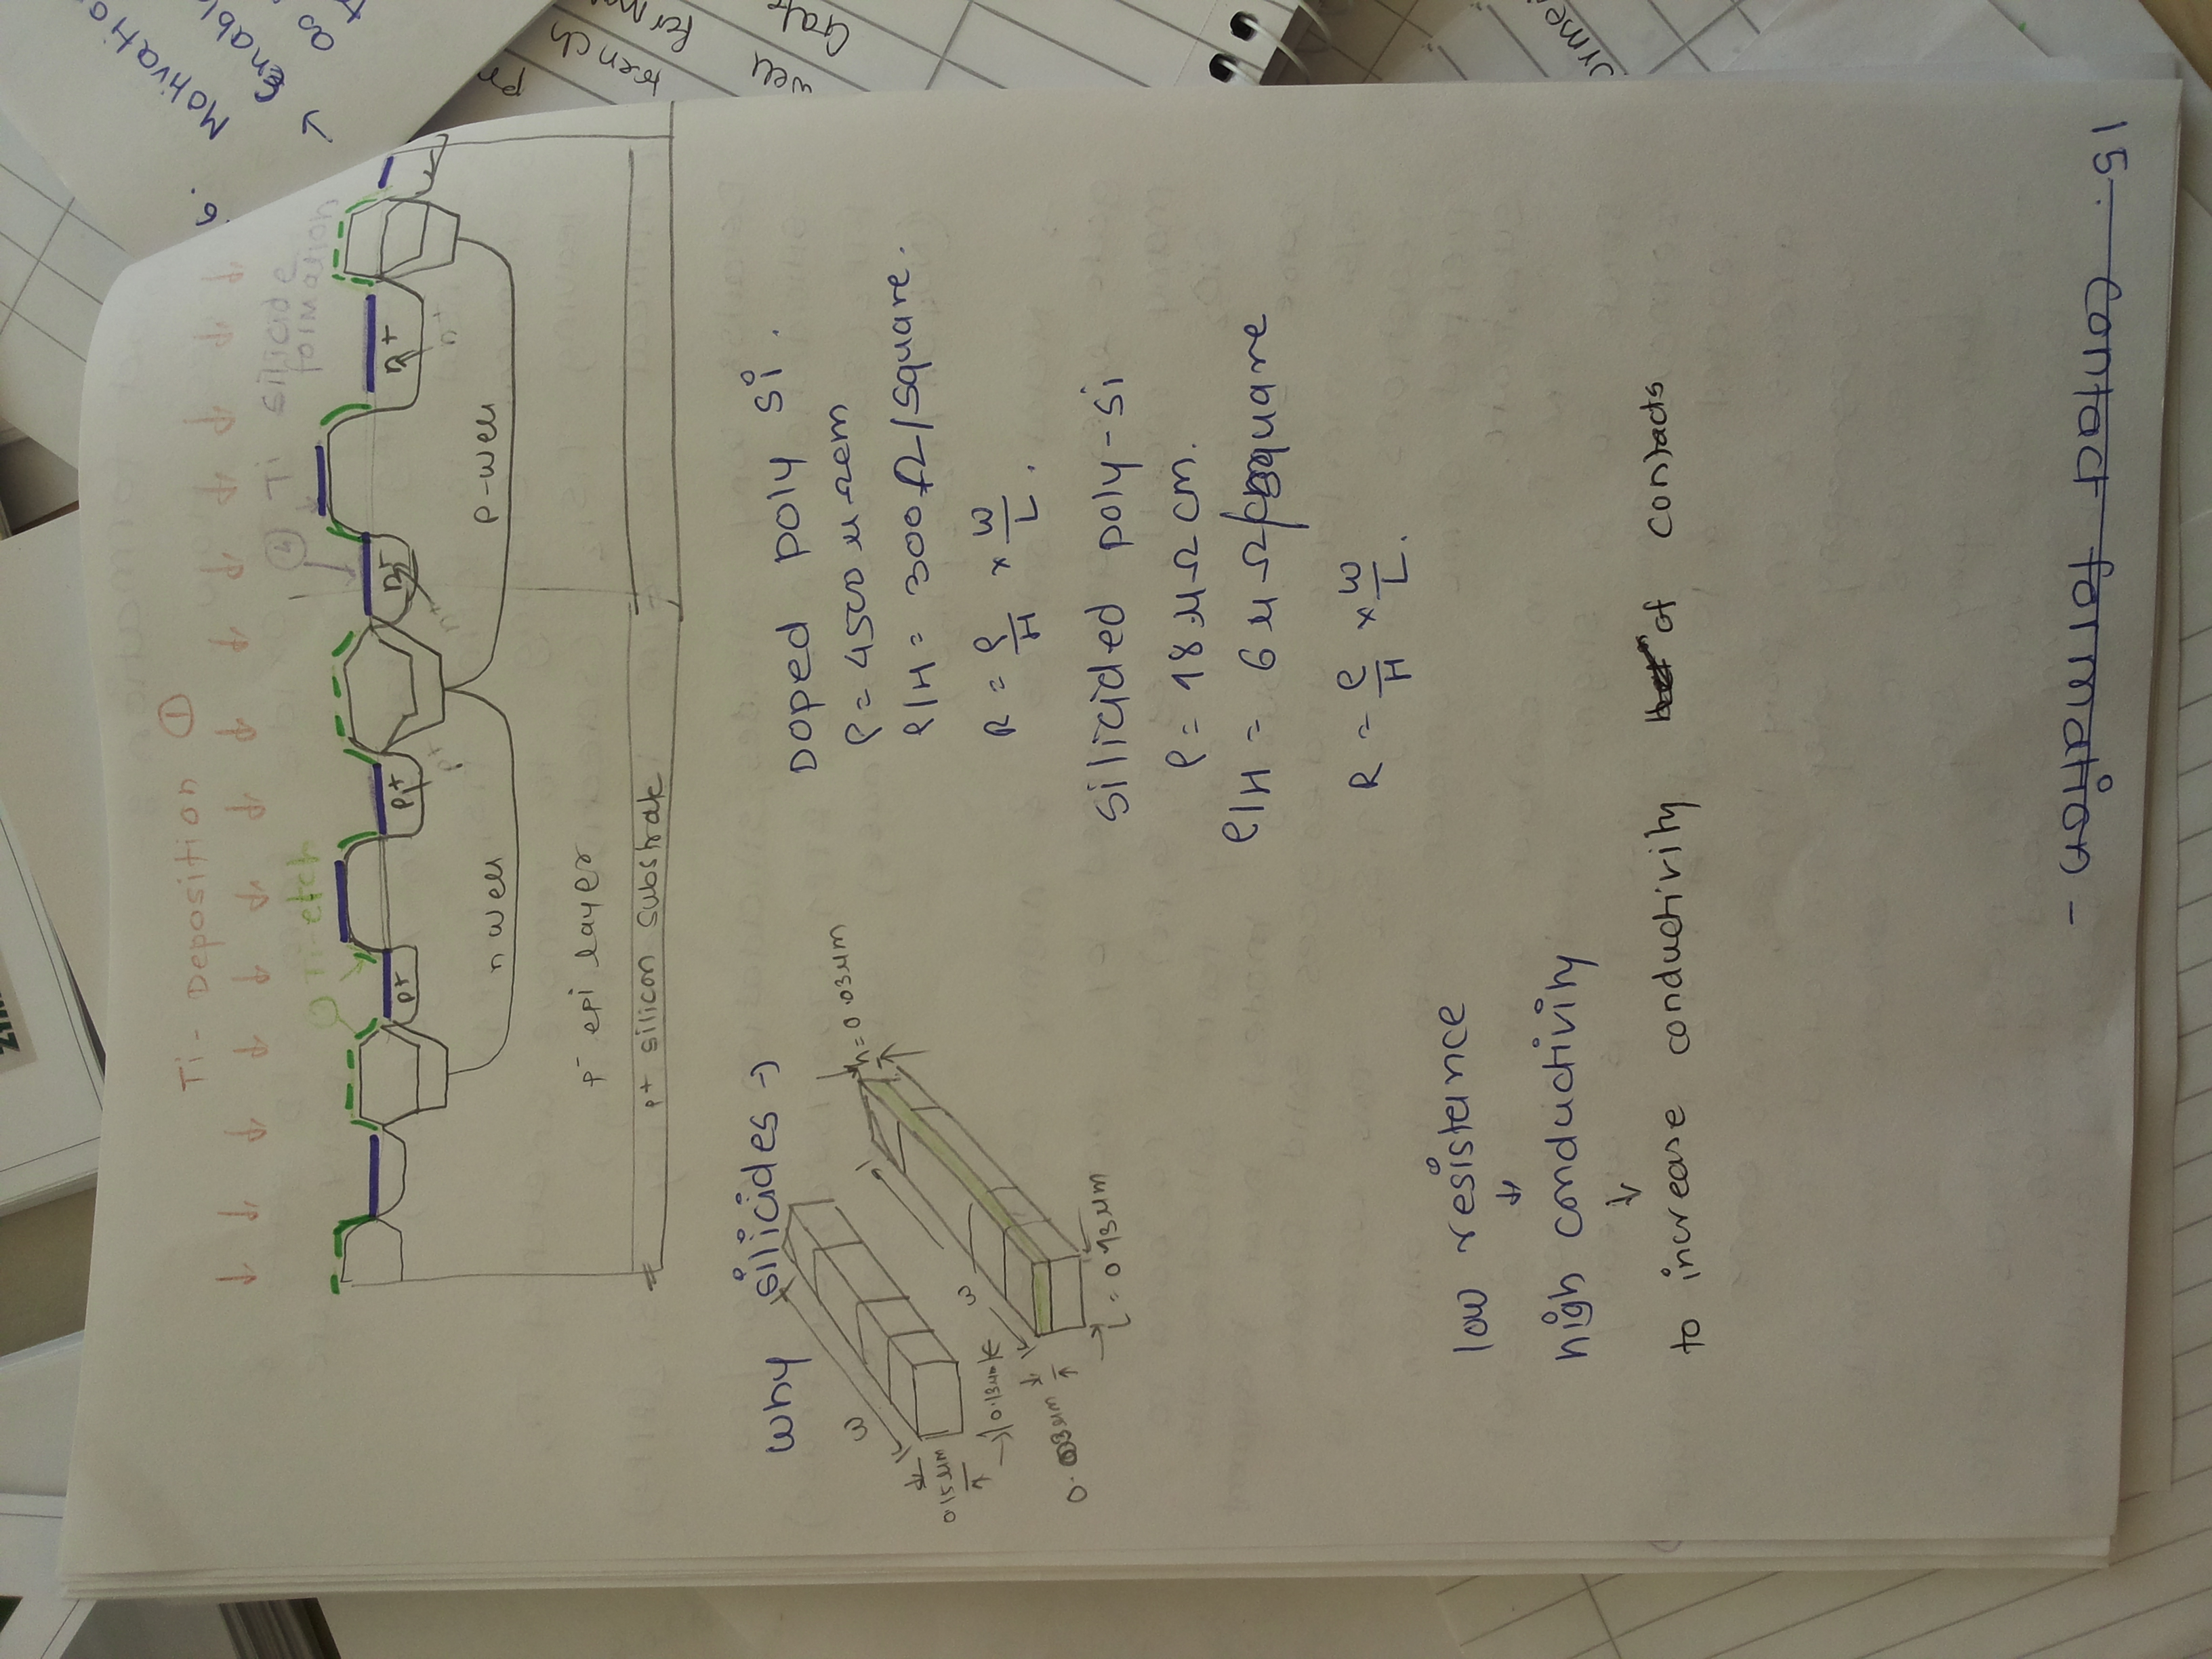 Ti- Deposition ①
④ Ti silicide
formation
Ti-etch
p+
p+
n+
n+
p+
n+
n+
n well
p-well
p⁻ epi layer
p+ silicon substrate
why silicides →
w
0.15 μm
0.13 μm
h = 0.03 μm
w
L = 0.13 μm
Doped poly si.
ρ = 4500 μ Ω cm
ρ/H = 300 Ω/square.
R = ρ/H × w/L.
silicided poly-si
ρ = 18 μ Ω cm.
ρ/H = 6 μ Ω/square
R = ρ/H × w/L.
low resistance
↓
high conductivity
↓
to increase conductivity of contacts
15. contact formation -
6.
Motivation
→ Enable
as
trench
well
Gate